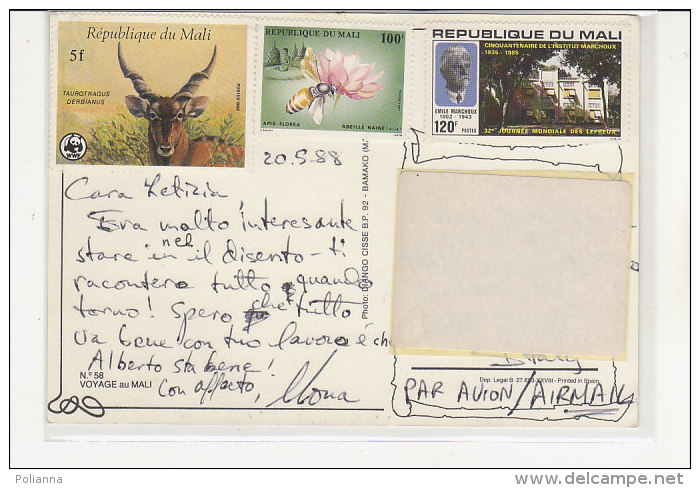 République du Mali
5f
TAUROTRAGUS
DERBIANUS
POSTES 1986
WWF
REPUBLIQUE DU MALI
100F
APIS FLOREA
ABEILLE NAINE
REPUBLIQUE DU MALI
CINQUANTENAIRE DE L'INSTITUT MARCHOUX
1935 - 1985
EMILE MARCHOUX
1862 - 1943
120F
POSTES
32e JOURNÉE MONDIALE DES LEPREUX
20.5.88
Cara Letizia,
Era molto interesante
stare in nel il diserto - ti
racontero tutto quando
torno! Spero che tutto
va bene con tuo lavoro é che
Alberto sta bene!
con affeto,
N.º 58
VOYAGE au MALI
Photo: DJANGO CISSE B.P. 92 - BAMAKO (M
Dep. Legal B. 27.693-XXVIII - Printed in Spain
PAR AVION/AIRMAIL
Polianna
www.delcampe.net